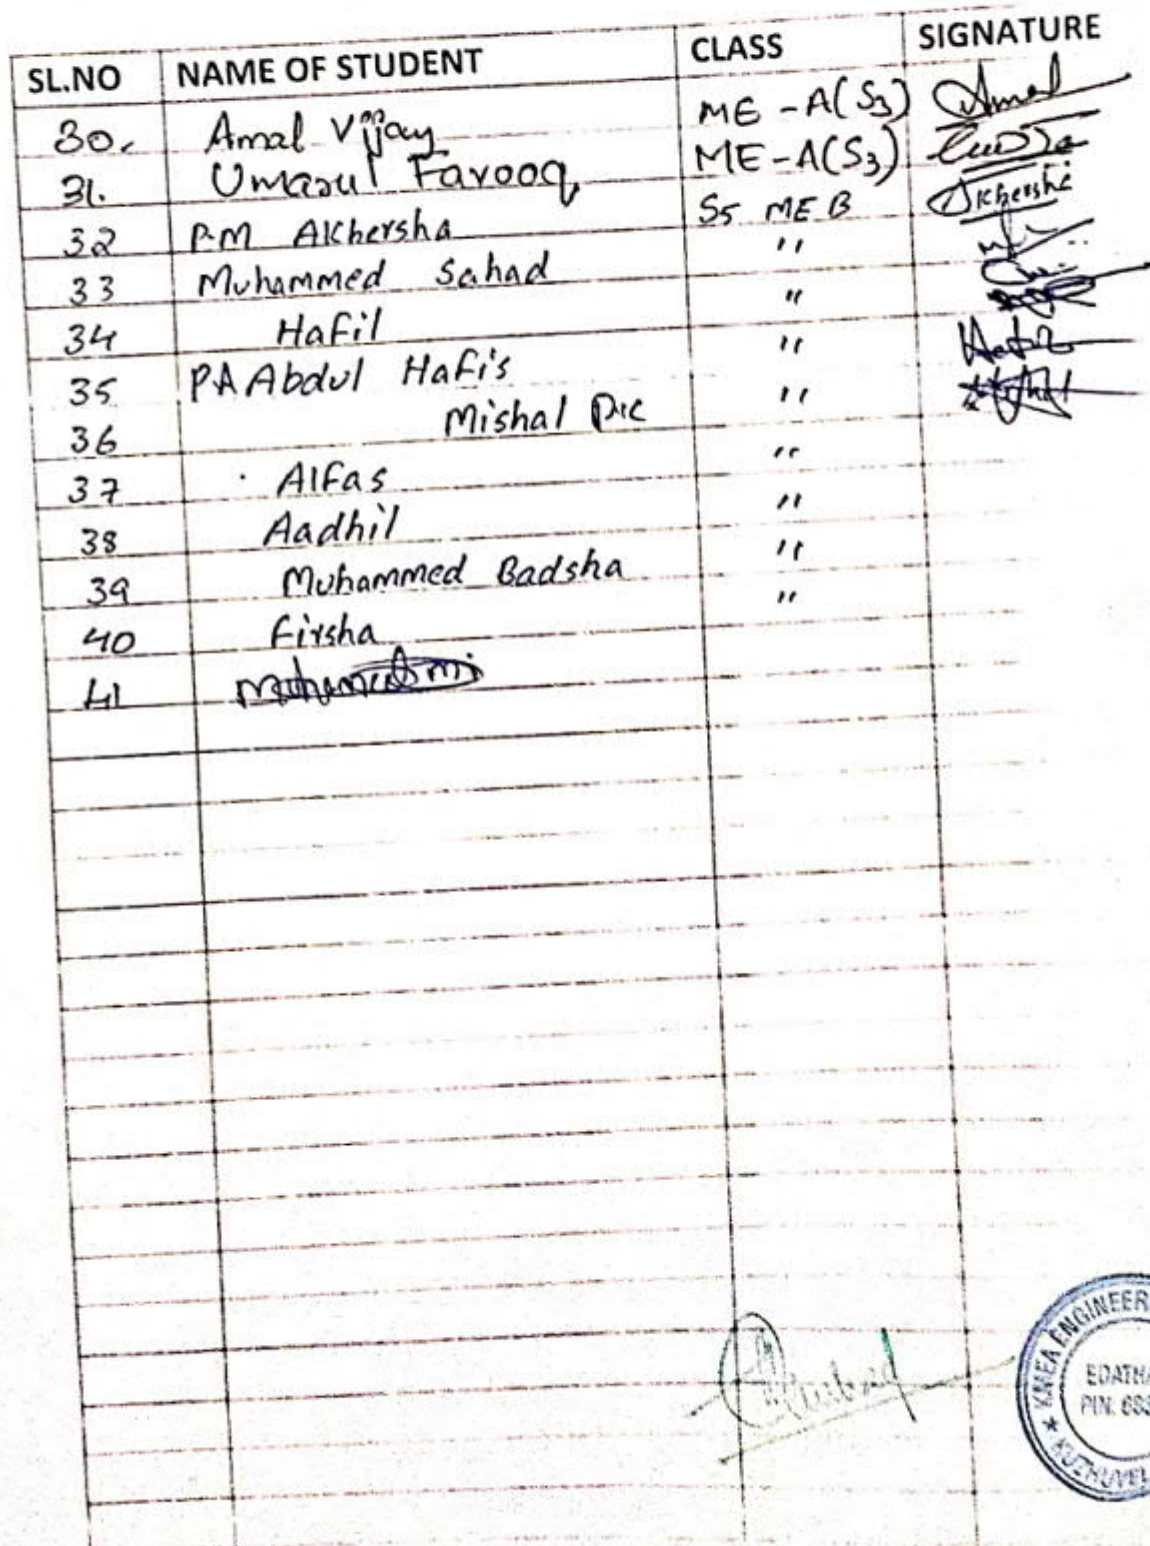 SL.NO NAME OF STUDENT CLASS SIGNATURE
30. Amal Vijay ME - A(S3) Amal
31. Umarul Farooq ME - A(S3)
32 P.M Akhersha S5 ME B Akhersha
33 Muhammed Sahad "
34 Hafil "
35 PA Abdul Hafis "
36 Mishal "
37 Alfas "
38 Aadhil "
39 Muhammed Badsha "
40 Firsha "
41
KMEA ENGINEER
EDATHA
PIN: 683
KUZHUVEL